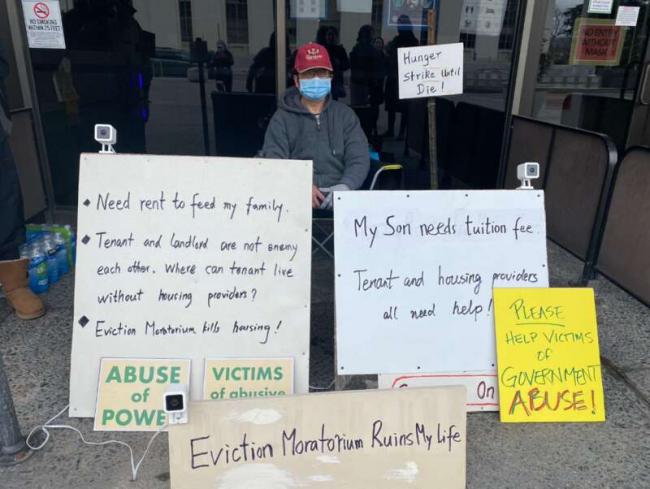 NO SMOKING
WITHIN 25 FEET
NO ENTRY
WITHOUT
MASK
Hunger
Strike Until
Die!
◆ Need rent to feed my family.
◆ Tenant and landlord are not enemy
each other. Where can tenant live
without housing providers?
◆ Eviction Moratorium kills housing!
My Son needs tuition fee
Tenant and housing providers
all need help!
PLEASE
HELP VICTIMS
OF
GOVERNMENT
ABUSE!
ABUSE of
POWE
VICTIMS
of abusive
On
Eviction Moratorium Ruins My Life